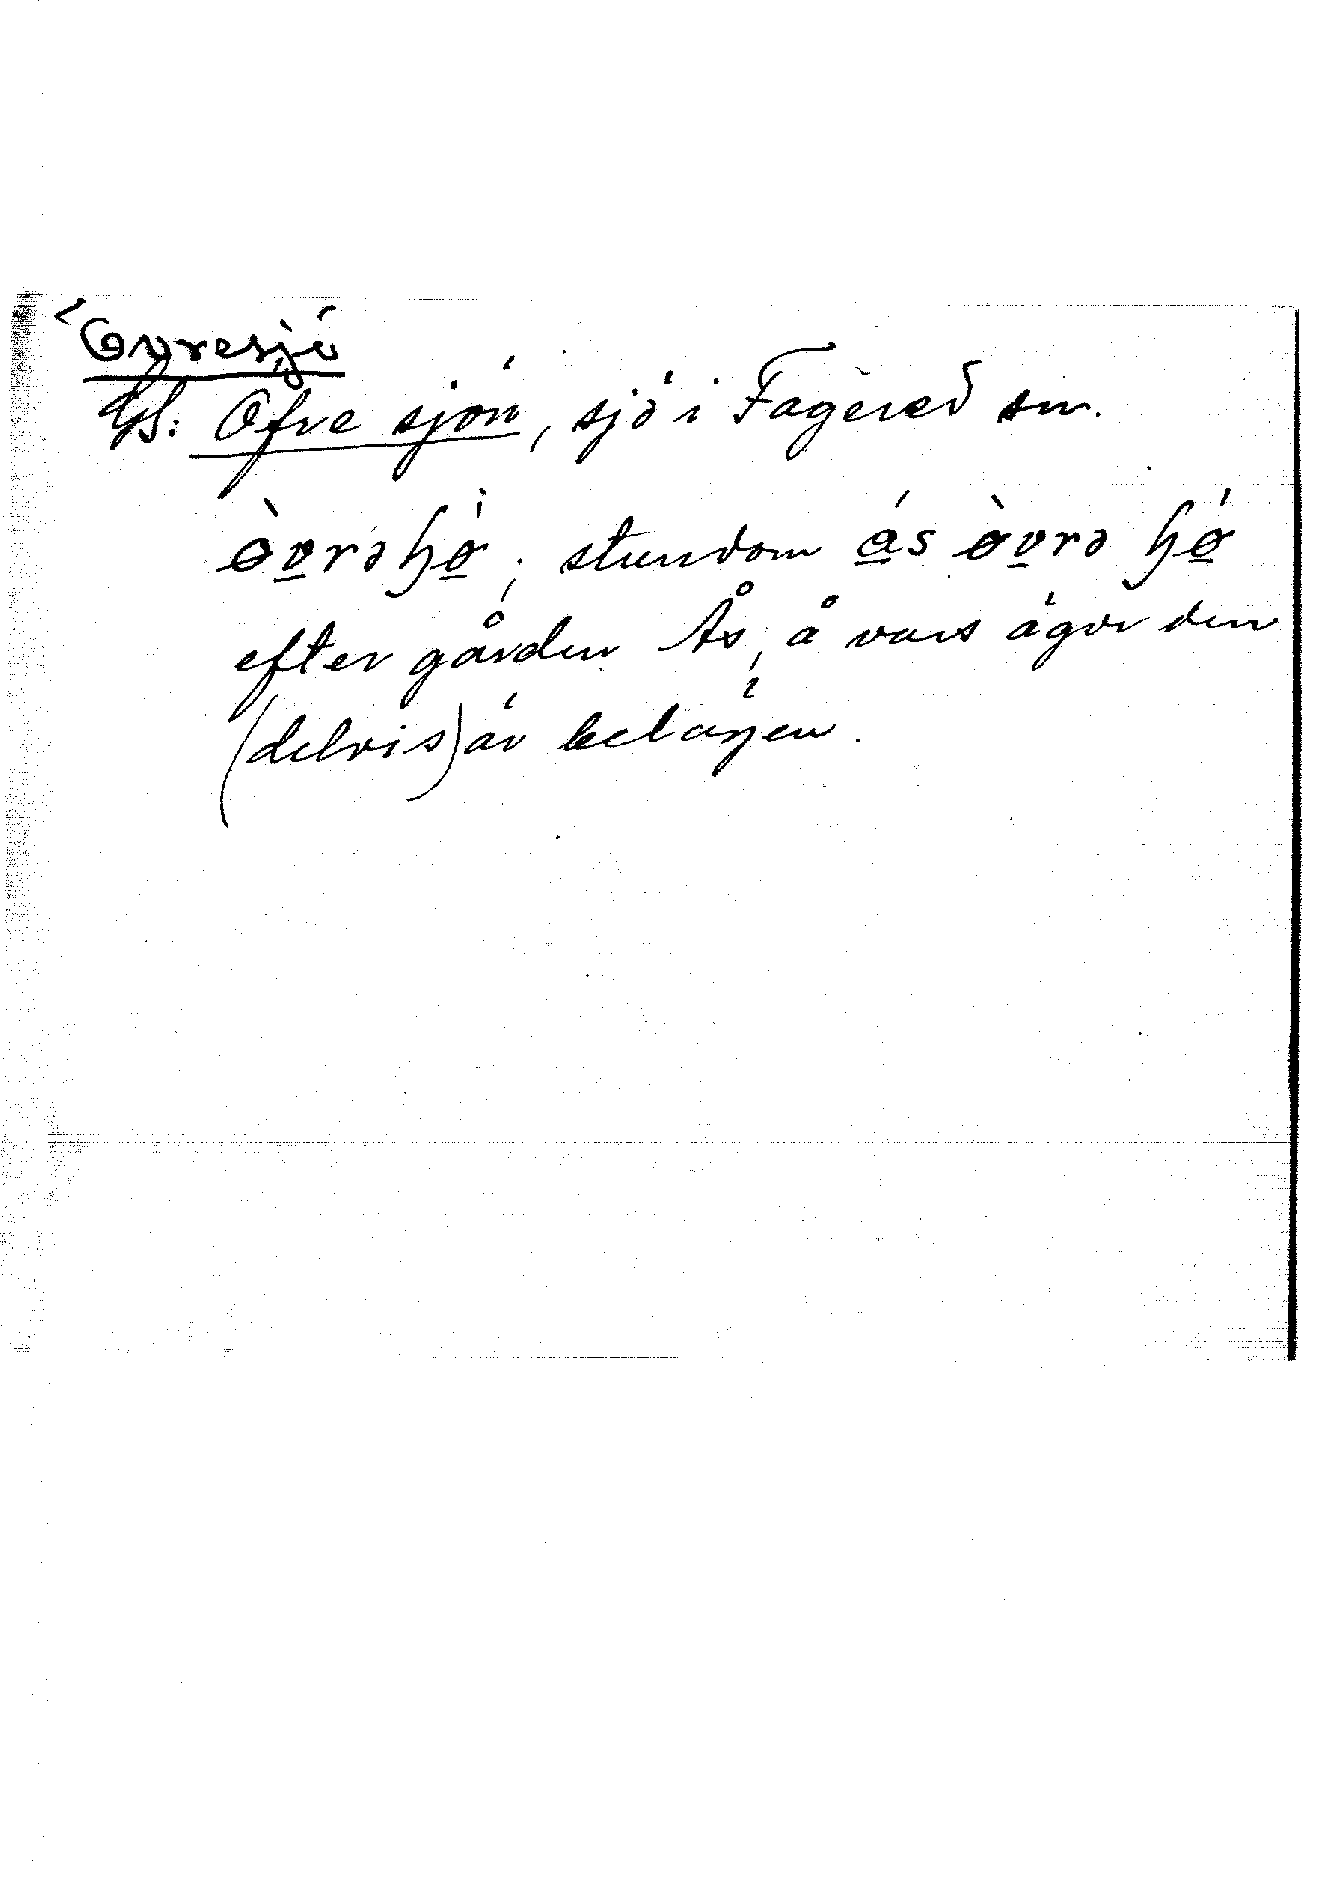 Övresjö
GS: Öfve sjön, sjö i Fagered sn.
ø̀vrəɧø̀, stundom ás ø̀vrə ɧǿ
efter gården Ås, å vars ägor den
(delvis) är belägen.